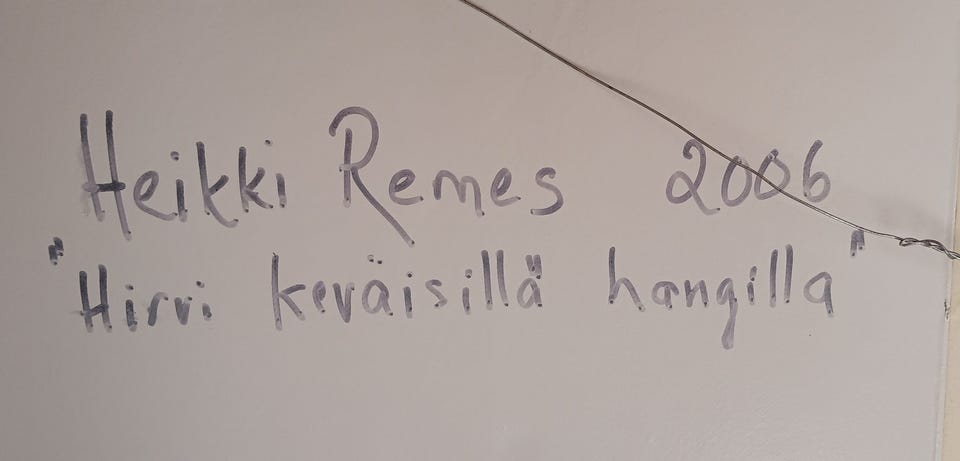 Heikki Remes 2006
"Hirvi keväisillä hangilla"